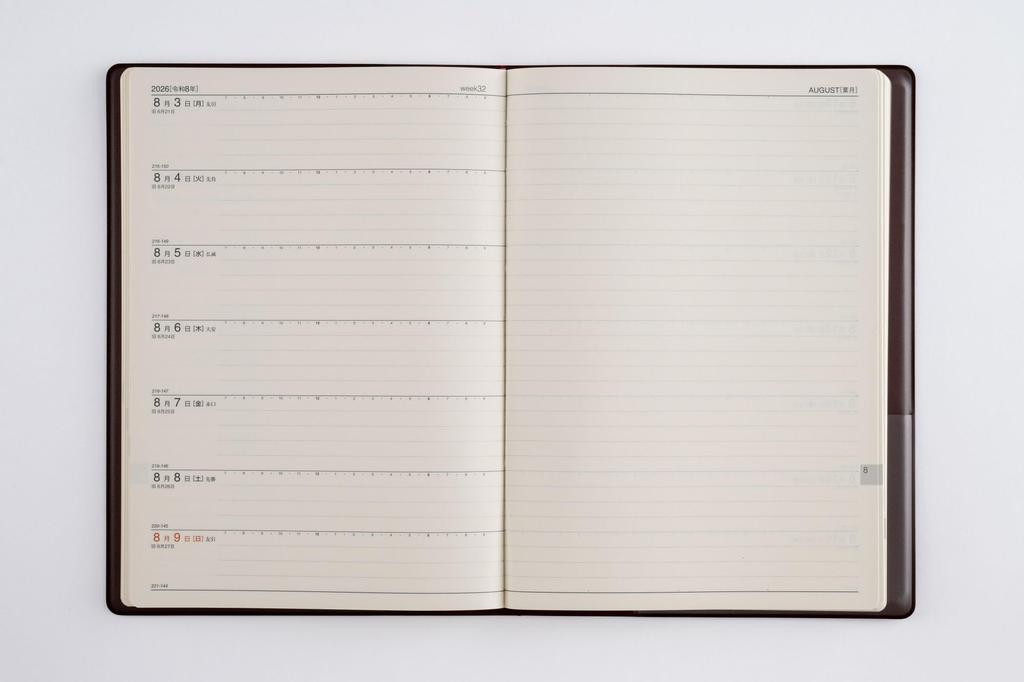 2026[令和8年]
week32
8月3日[月] 友引
旧6月21日
215-150
8月4日[火] 先負
旧6月22日
216-149
8月5日[水] 仏滅
旧6月23日
217-148
8月6日[木] 大安
旧6月24日
218-147
8月7日[金] 赤口
旧6月25日
219-146
8月8日[土] 先勝
旧6月26日
220-145
8月9日[日] 友引
旧6月27日
221-144
AUGUST[葉月]
8